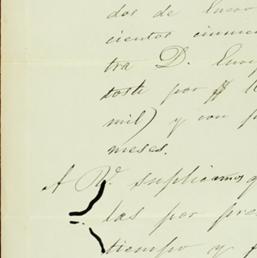 dos de Enero
cientos cincuen
tra D. Enri
toste por $
mil) y con p
meses.
A V. suplicamos q
las por pre
tiempo y f